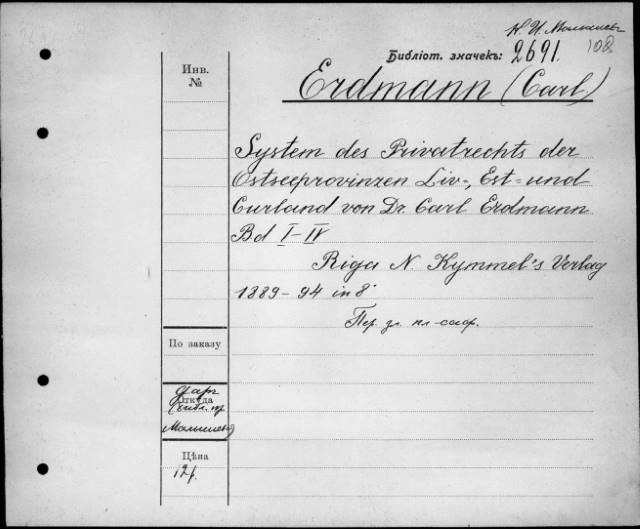 К. И. Малышевъ
Библіот. значекъ: 2691. 102
Инв.
№
Erdmann (Carl)
System des Privatrechts der
Ostseeprovinzen Liv-, Est- und
Curland von Dr. Carl Erdmann
Bd I–IV
Riga N. Kymmel's Verlag
1889–94 in 8°
Пер.
По заказу
даръ
Откуда
(библ. пр
Малышева)
Цѣна
12 р.